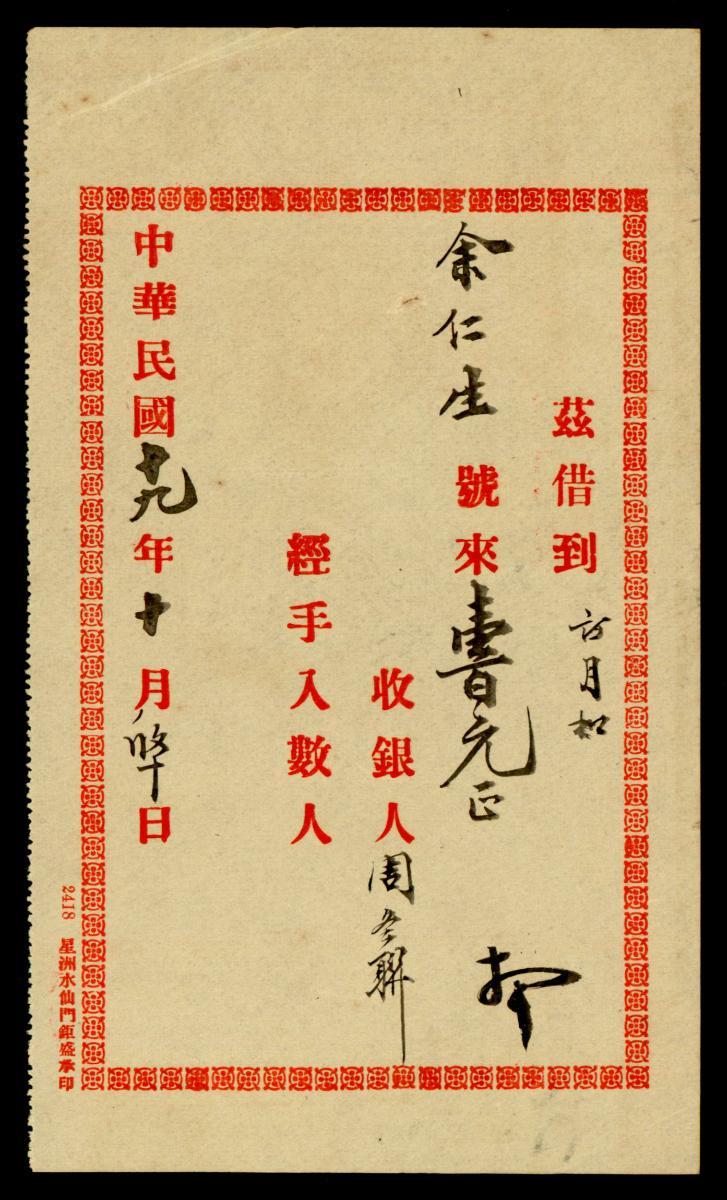 茲借到
月
余仁生號來壹元正
收銀人周
經手入數人
中華民國十九年十月日
2418 星洲水仙門鉅盛承印